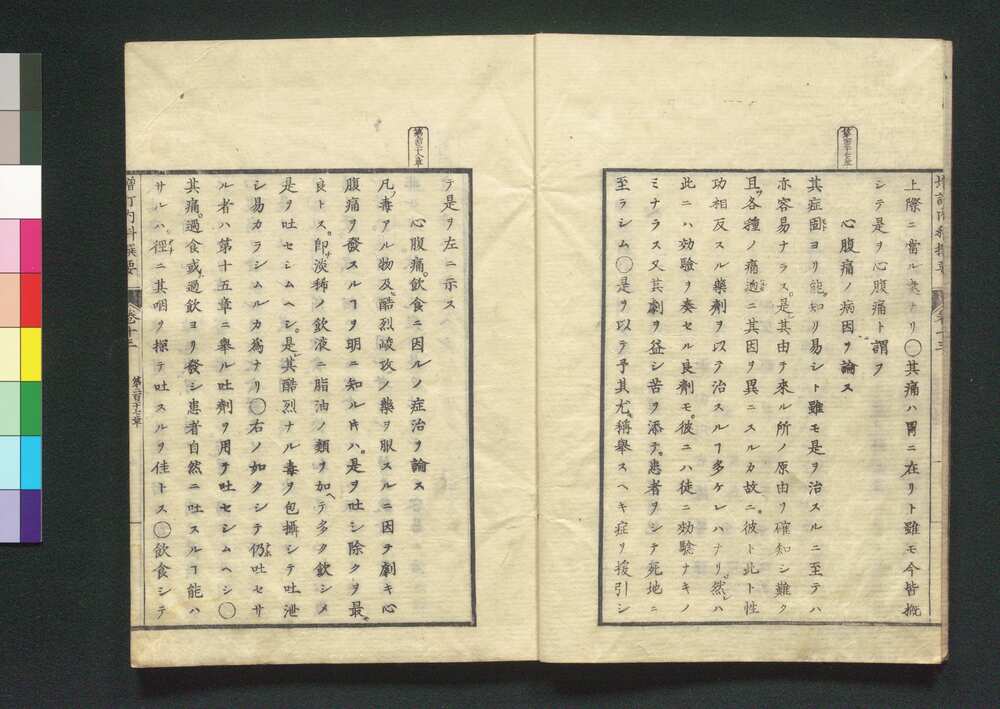 第百十七章
上際ニ當ル處ナリ〇其痛ハ胃ニ在リト雖モ今皆概
シテ是ヲ心腹痛ト謂フ
心腹痛ノ病因ヲ論ス
其症固ヨリ能ク知リ易シト雖モ是ヲ治スルニ至テハ
亦容易ナラス是レ其由テ來ル所ノ原由リ確知シ難ク
且ツ各種ノ痛適ニ其因ヲ異ニスルカ故ニ彼ト此ト性
功相反スル藥劑ヲ以テ治スルヿ多ケレハナリ然レハ
此ニハ効驗ヲ奏セル良劑モ彼ニハ徒ニ効驗ナキノ
ミナラス又其劇ヲ益シ苦ヲ添テ患者ヲシテ死地ニ
至ラシム〇是ヲ以テ予其尤稱舉スヘキ症リ援引シ
第百十八章
テ是ヲ左ニ示ス
心腹痛飲食ニ因ルノ症治ヲ論ス
凡ソ毒アル物及ヒ酷烈峻攻ノ藥ヲ服スルニ因テ劇キ心
腹痛ヲ發スルヿヲ明ニ知ル片ハ是ヲ吐シ除クヲ最
良トス即チ淡稀ノ飲液ニ脂油ノ類ヲ加ヘテ多ク飲シメ
是ヲ吐セシムヘシ是レ其酷烈ナル毒ヲ包攝シテ吐泄
シ易カラシムルカ為ナリ〇右ノ如クシテ仍吐セサ
ル者ハ第十五章ニ舉ル吐劑ヲ用テ吐セシムヘシ〇
其痛過食或ハ過飲ヨリ發シ患者自然ニ吐スルヿ能ハ
サルハ徑ニ其咽ヲ探テ吐スルヲ佳トス〇飲食シテ
増訂内科撰要
卷十三
第百十七章